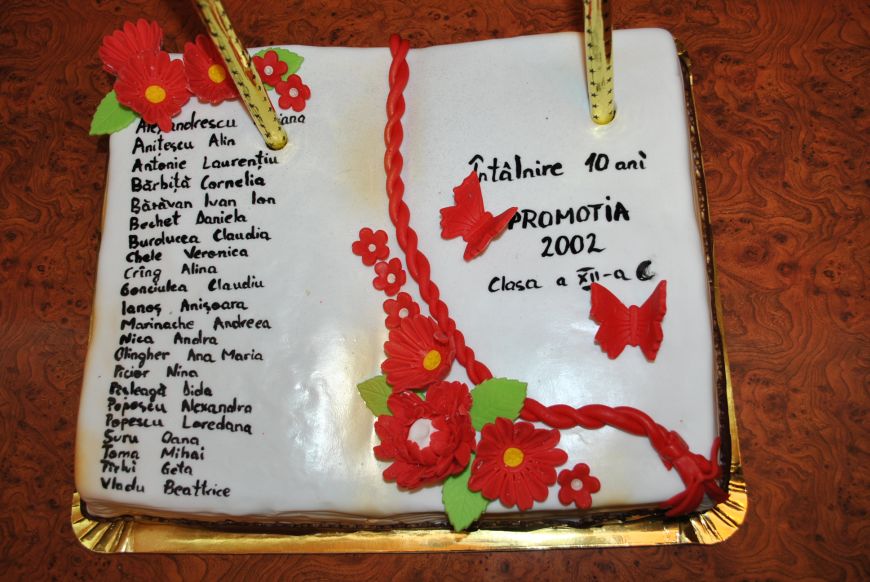 Alexandrescu
Anițescu Alin
Antonie Laurențiu
Bărbiță Cornelia
Bărăvan Ivan Ion
Bechet Daniela
Burducea Claudia
Chele Veronica
Crîng Alina
Gonciulea Claudiu
Ianoș Anișoara
Marinache Andreea
Nica Andra
Olingher Ana Maria
Picior Nina
Pîsleagă Dida
Popescu Alexandra
Popescu Loredana
Șuru Oana
Toma Mihai
Geta
Vladu Beattrice
Întâlnire 10 ani
PROMOTIA
2002
Clasa a XII-a C